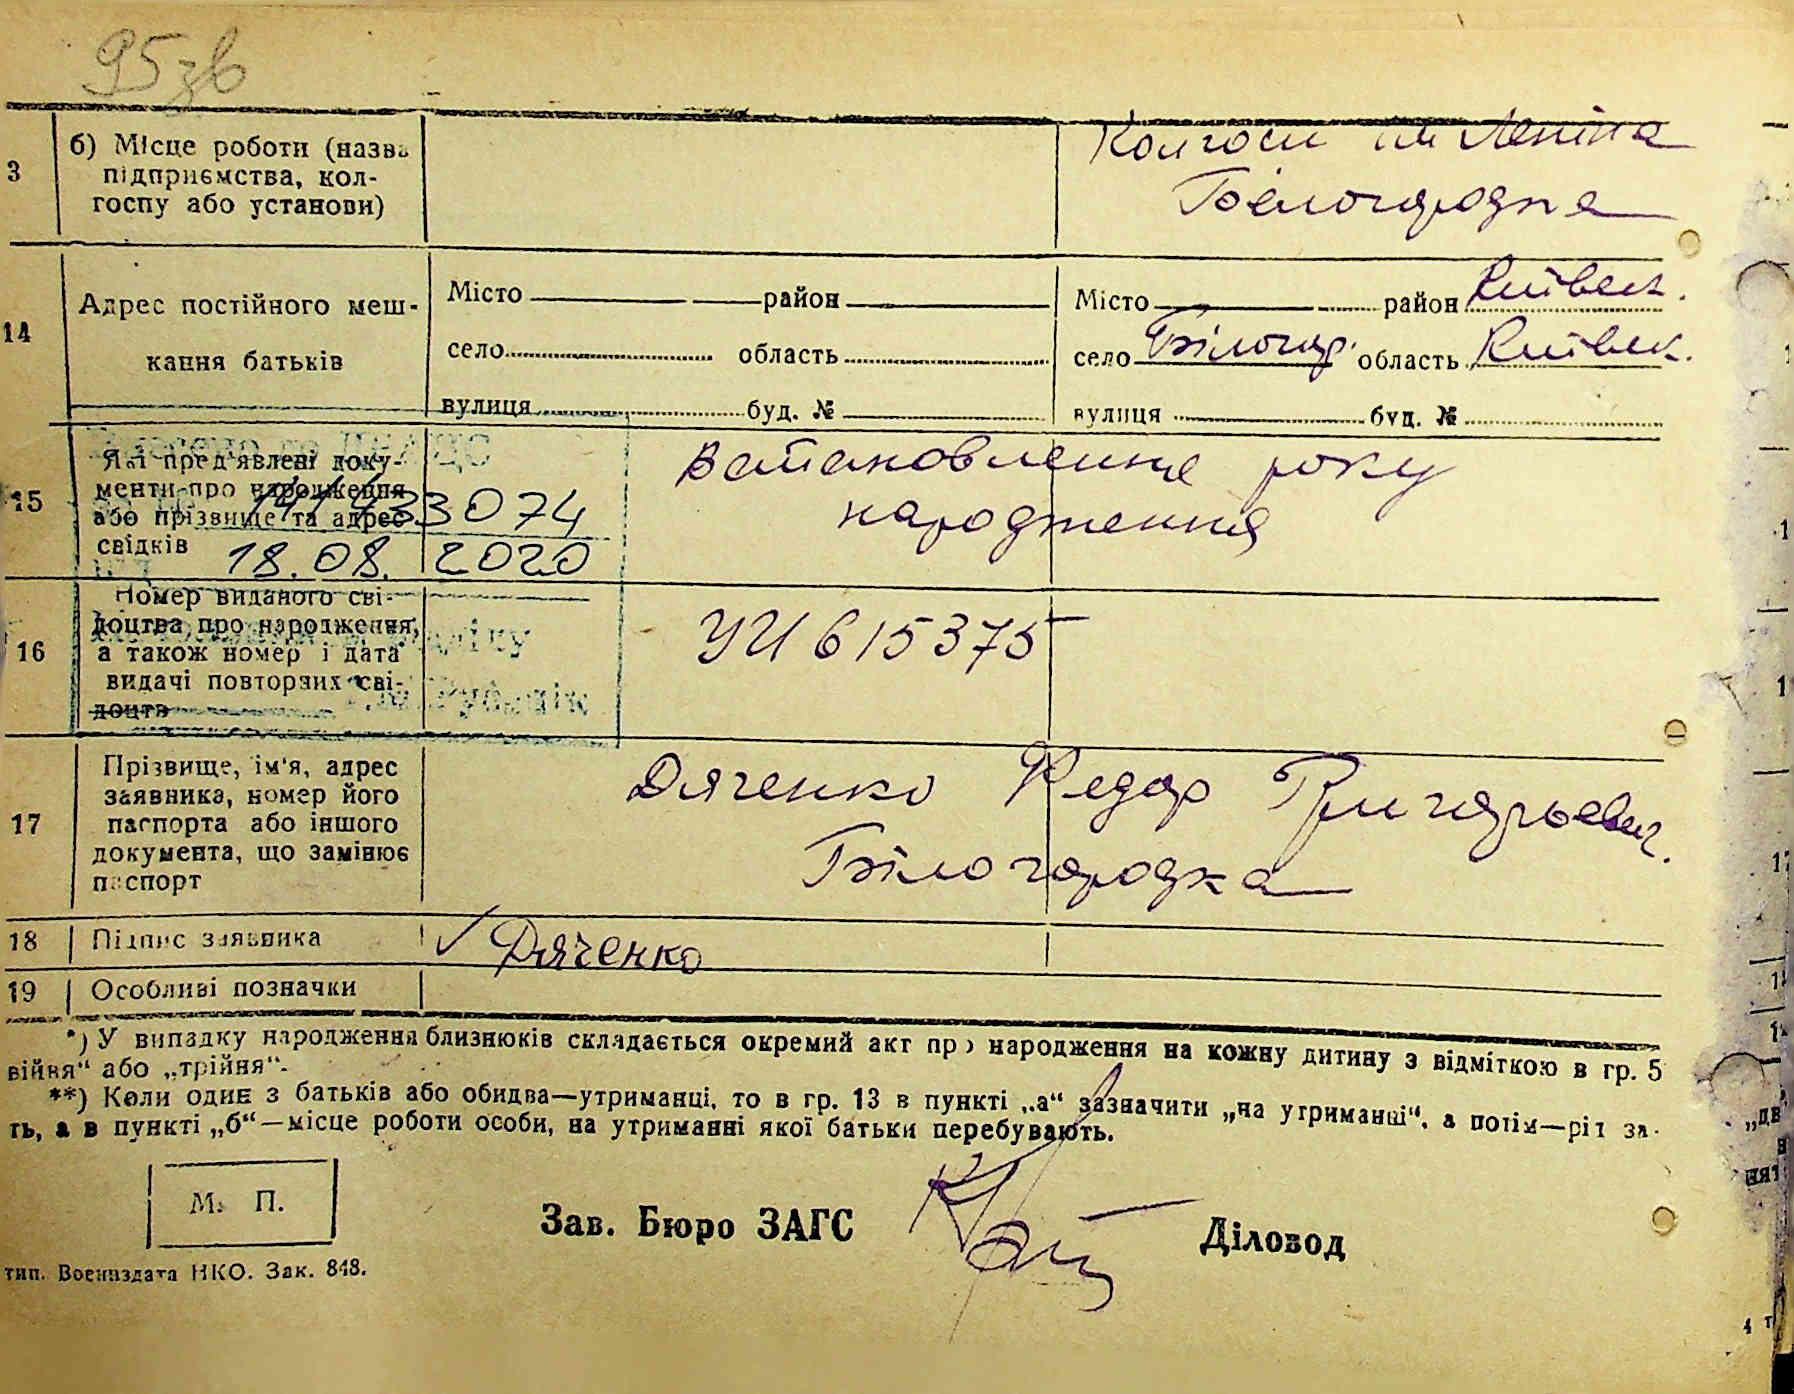 95зв
3 б) Місце роботи (назва підприємства, колгоспу або установи)
Колгосп ім Леніна
Білогородка
14 Адрес постійного мешкання батьків
Місто район Місто район Київськ.
село область село Білогор. область Київськ.
вулиця буд. № вулиця буд. №
15 Які пред'явлені документи про народження або прізвище та адрес свідків
Встановлення року
народження
33074
18.08. 2020
16 Номер виданого свідоцтва про народження, а також номер і дата видачі повторних свідоцтв
УИ 615375
17 Прізвище, ім'я, адрес заявника, номер його паспорта або іншого документа, що замінює паспорт
Дяченко Федор Григорьевич.
Білогородка
18 Підпис заявника
✓ Дяченко
19 Особливі позначки
*) У випадку народження близнюків складається окремий акт про народження на кожну дитину з відміткою в гр. 5
війня“ або „трійня“.
**) Коли один з батьків або обидва—утриманці, то в гр. 13 в пункті „а“ зазначити „на утриманні“, а потім—рід за-
ть, а в пункті „б“—місце роботи особи, на утриманні якої батьки перебувають.
М. П.
Зав. Бюро ЗАГС
Діловод
тип. Воениздата НКО. Зак. 848.